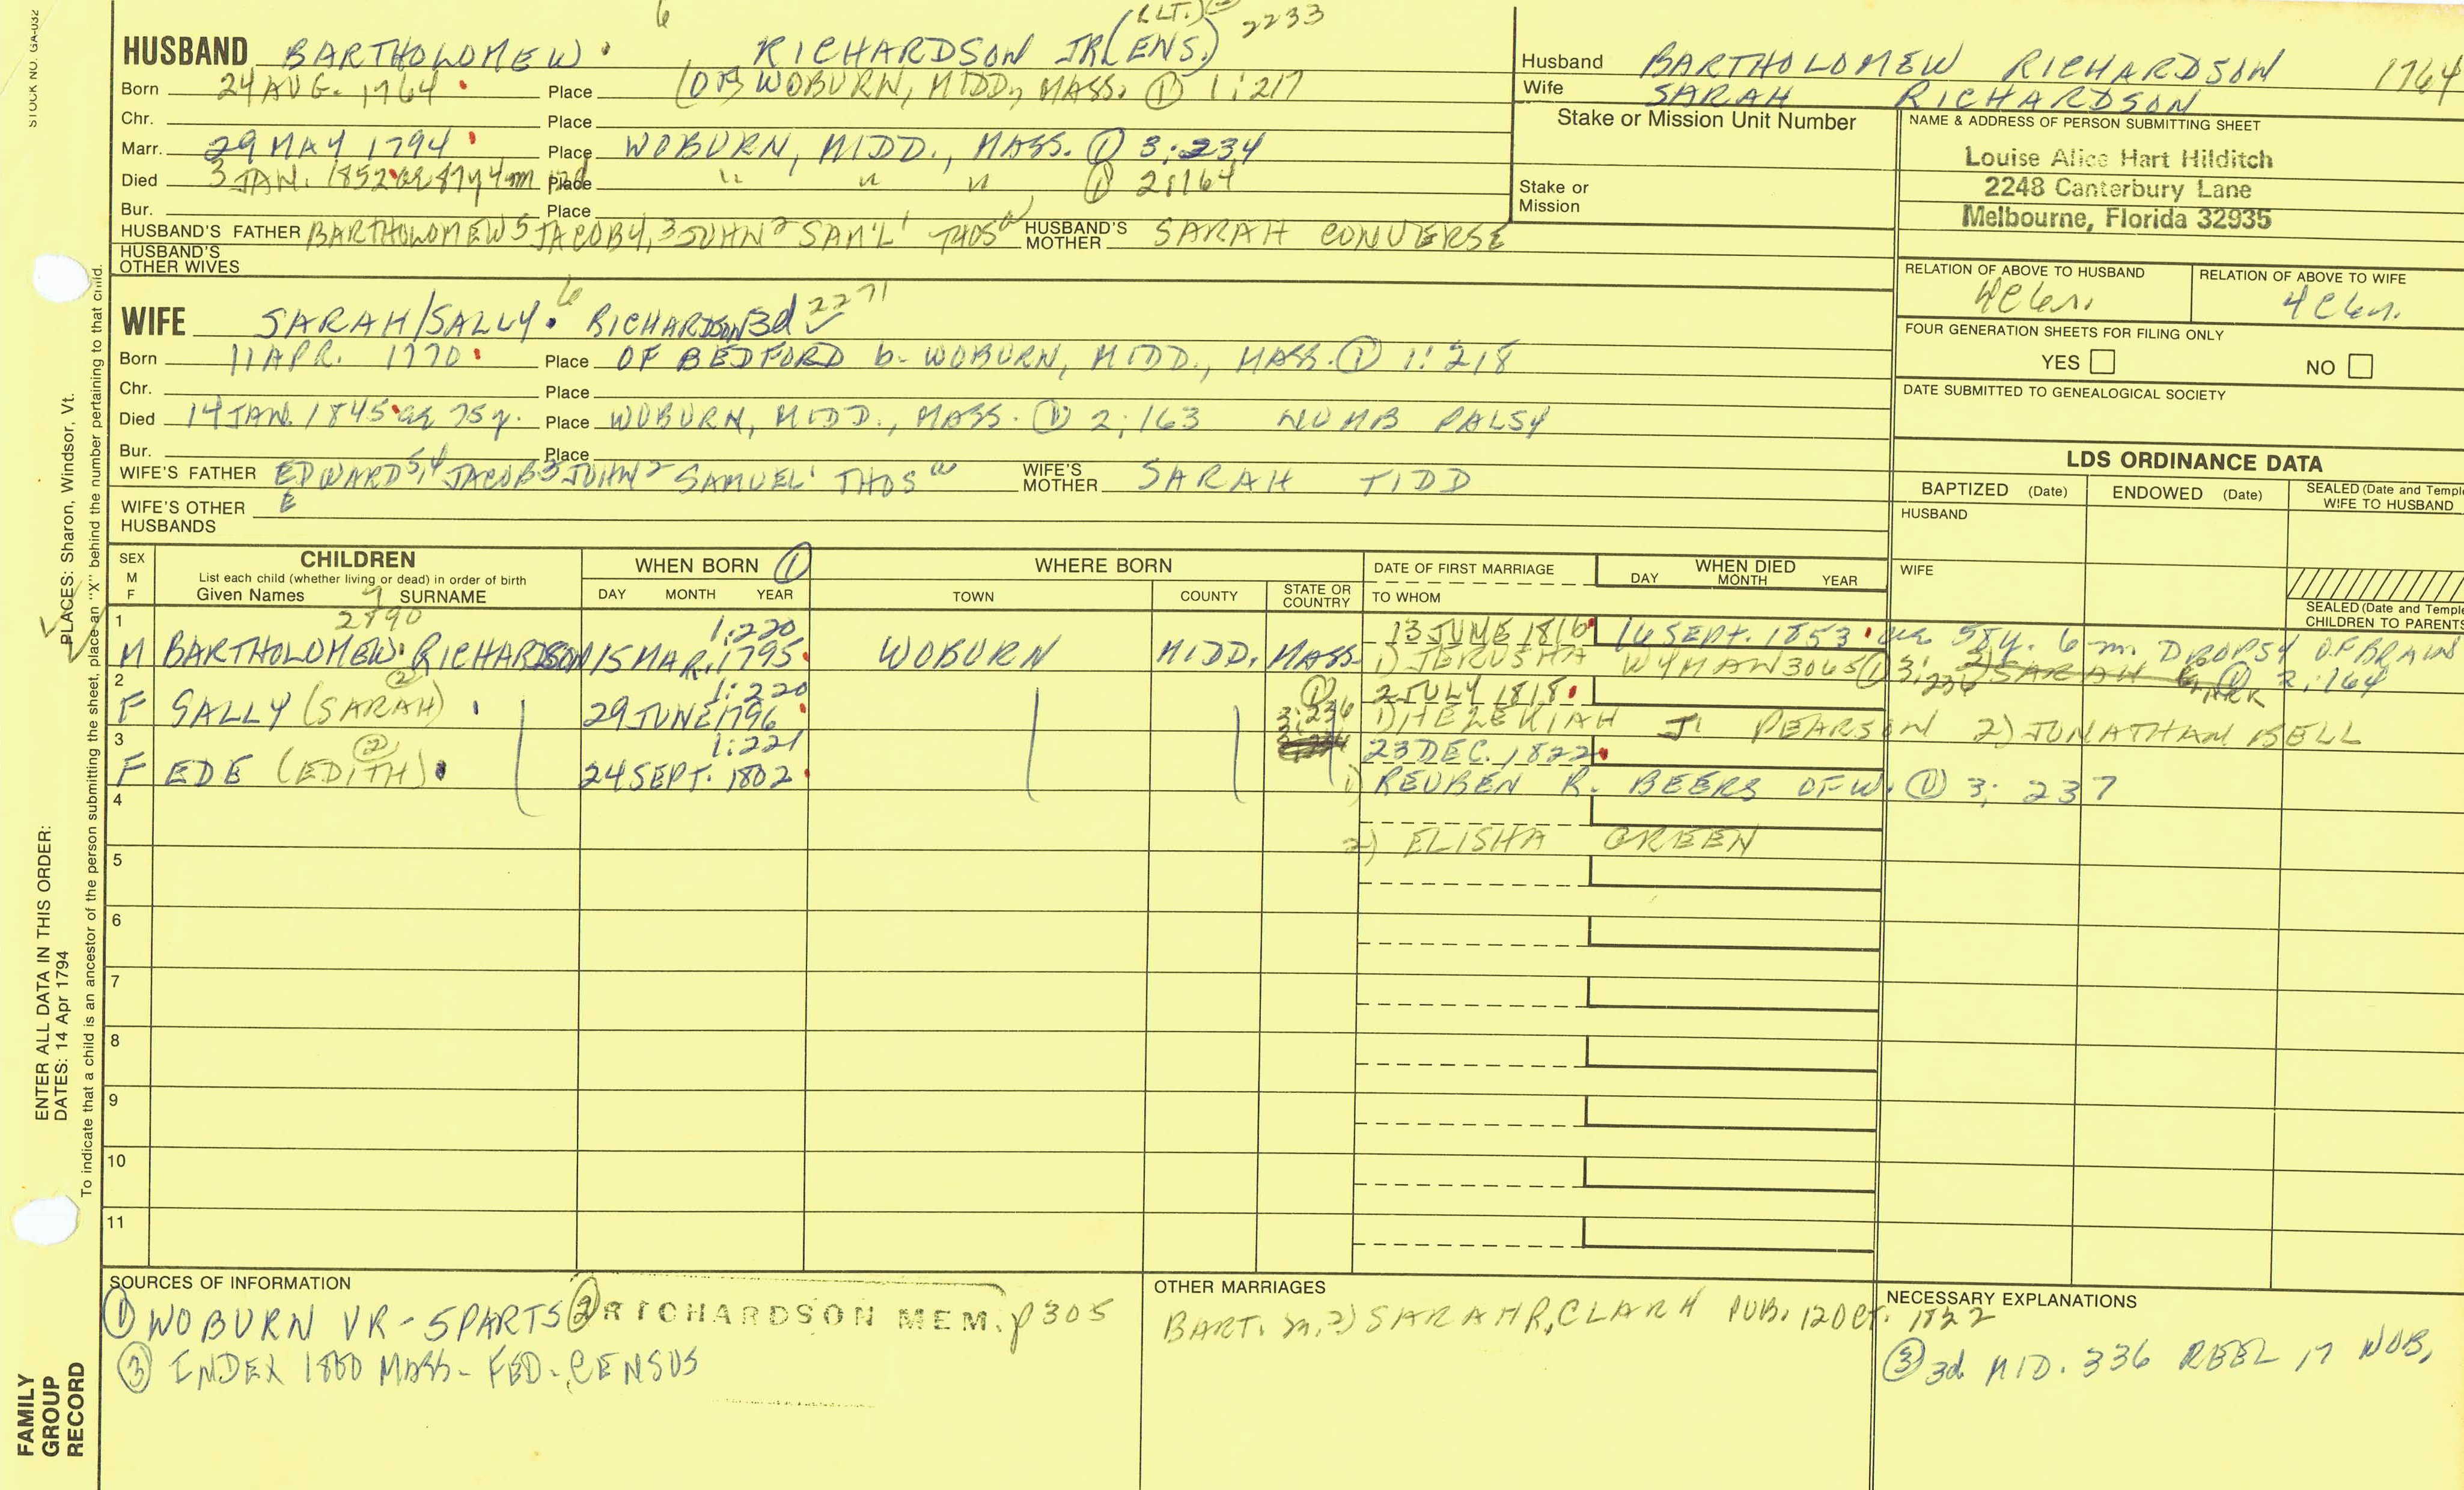 STOCK NO. GA-032
6 (LT.) 2233
HUSBAND BARTHOLOMEW RICHARDSON JR (ENS.)
Born 24 AUG. 1764 Place (OF) WOBURN, MIDD., MASS. ① 1:217
Chr. Place
Marr. 29 MAY 1794 Place WOBURN, MIDD., MASS. ① 3:234
Died 3 JAN. 1852 ae 87y 4m Place " " " ① 2:164
Bur. Place
HUSBAND'S FATHER BARTHOLOMEW 5 JACOB 4, 3 JOHN 2 SAM'L 1 THOS a HUSBAND'S MOTHER SARAH CONVERSE
HUSBAND'S OTHER WIVES
6 2271
WIFE SARAH/SALLY RICHARDSON 3d
Born 11 APR. 1770 Place OF BEDFORD b. WOBURN, MIDD., MASS. ① 1:218
Chr. Place
Died 14 JAN. 1845 ae 75y. Place WOBURN, MIDD., MASS. ① 2:163 NUMB PALSY
Bur. Place
WIFE'S FATHER EDWARD 5,4 JACOB 3 JOHN 2 SAMUEL 1 THOS a WIFE'S MOTHER SARAH TIDD
WIFE'S OTHER HUSBANDS E
Husband BARTHOLOMEW RICHARDSON 1764
Wife SARAH RICHARDSON
Stake or Mission Unit Number
Stake or Mission
NAME & ADDRESS OF PERSON SUBMITTING SHEET
Louise Alice Hart Hilditch
2248 Canterbury Lane
Melbourne, Florida 32935
RELATION OF ABOVE TO HUSBAND RELATION OF ABOVE TO WIFE
4C 6r. 4C 6r.
FOUR GENERATION SHEETS FOR FILING ONLY
YES NO
DATE SUBMITTED TO GENEALOGICAL SOCIETY
LDS ORDINANCE DATA
BAPTIZED (Date) ENDOWED (Date) SEALED (Date and Templ
WIFE TO HUSBAND
HUSBAND
WIFE
SEALED (Date and Temple
CHILDREN TO PARENTS
SEX M F CHILDREN WHEN BORN ① WHERE BORN DATE OF FIRST MARRIAGE WHEN DIED
List each child (whether living or dead) in order of birth
Given Names SURNAME DAY MONTH YEAR TOWN COUNTY STATE OR COUNTRY TO WHOM DAY MONTH YEAR
7
1 2890 1:220 13 JUNE 1816 16 SEPT. 1853 ae 58y. 6 m. DROPSY OF BRAIN
M BARTHOLOMEW RICHARDSON 15 MAR. 1795 WOBURN MIDD. MASS. 1) JERUSHA WYMAN 3065 ① 3:236 2) SARAH ① 2:164
2 ② 1:220 ① 2 JULY 1818
F SALLY (SARAH) 29 JUNE 1796 3:236 1) HEZEKIAH J. PEARSON 2) JONATHAN BELL
3 ② 1:221 23 DEC. 1822
F EDE (EDITH) 24 SEPT. 1802 1) REUBEN R. BEERS OF W. ① 3:237
4
2) ELISHA GREEN
5
6
7
8
9
10
11
SOURCES OF INFORMATION
① WOBURN VR - 5 PARTS ② RICHARDSON MEM. p 305
③ INDEX 1850 MASS. FED. CENSUS
OTHER MARRIAGES
BART. m. 2) SARAH R. CLARK PUB. 12 Oct. 1822
NECESSARY EXPLANATIONS
③ 3d MID. 336 REEL 17 WOB.
ENTER ALL DATA IN THIS ORDER:
DATES: 14 Apr 1794
PLACES: Sharon, Windsor, Vt.
To indicate that a child is an ancestor of the person submitting the sheet, place an "X" behind the number pertaining to that child.
FAMILY
GROUP
RECORD